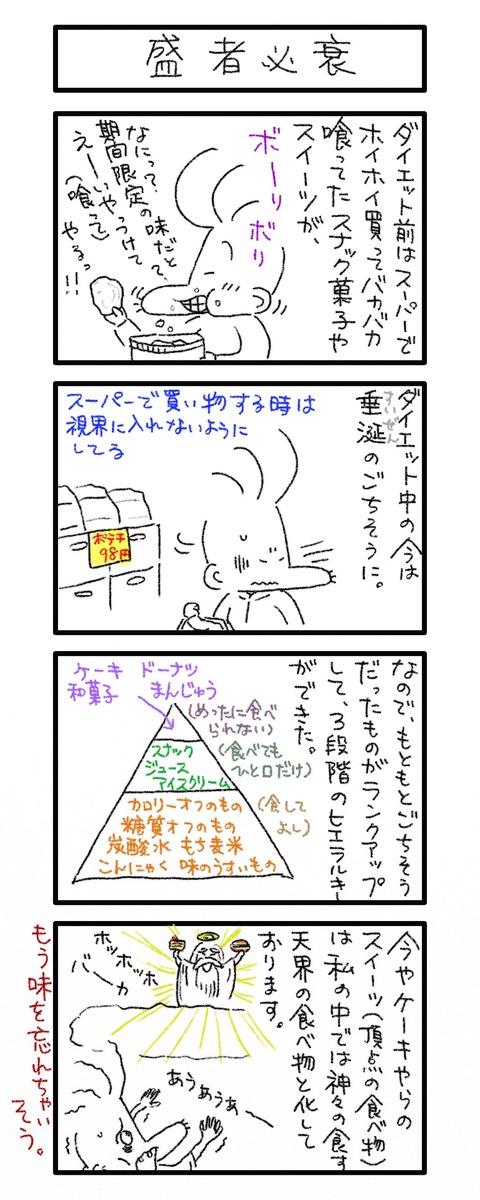 盛者必衰
ダイエット前はスーパーで
ホイホイ買ってバカバカ
喰ってたスナック菓子や
スイーツが、
ボーリボリ
なにって？
期間限定の味だと？
えーいやっつけて
（喰って）
やるっ!!
ダイエット中の今は
垂涎のごちそうに。
すいぜん
スーパーで買い物する時は
視界に入れないように
してる
ポテチ
98円
なので、もともとごちそう
だったものがランクアップ
して、3段階のヒエラルキー
ができた。
ケーキ ドーナツ
和菓子 まんじゅう
（めったに食べ
られない）
スナック
ジュース
アイスクリーム
（食べても
ひと口だけ）
カロリーオフのもの
糖質オフのもの
炭酸水 もち麦米
こんにゃく 味のうすいもの
（食して
よし）
今やケーキやらの
スイーツ（頂点の食べ物）
は私の中では神々の食す
天界の食べ物と化して
おります。
ホッホッホ
バーカ
あうあうあー
もう味を忘れちゃい
そう。